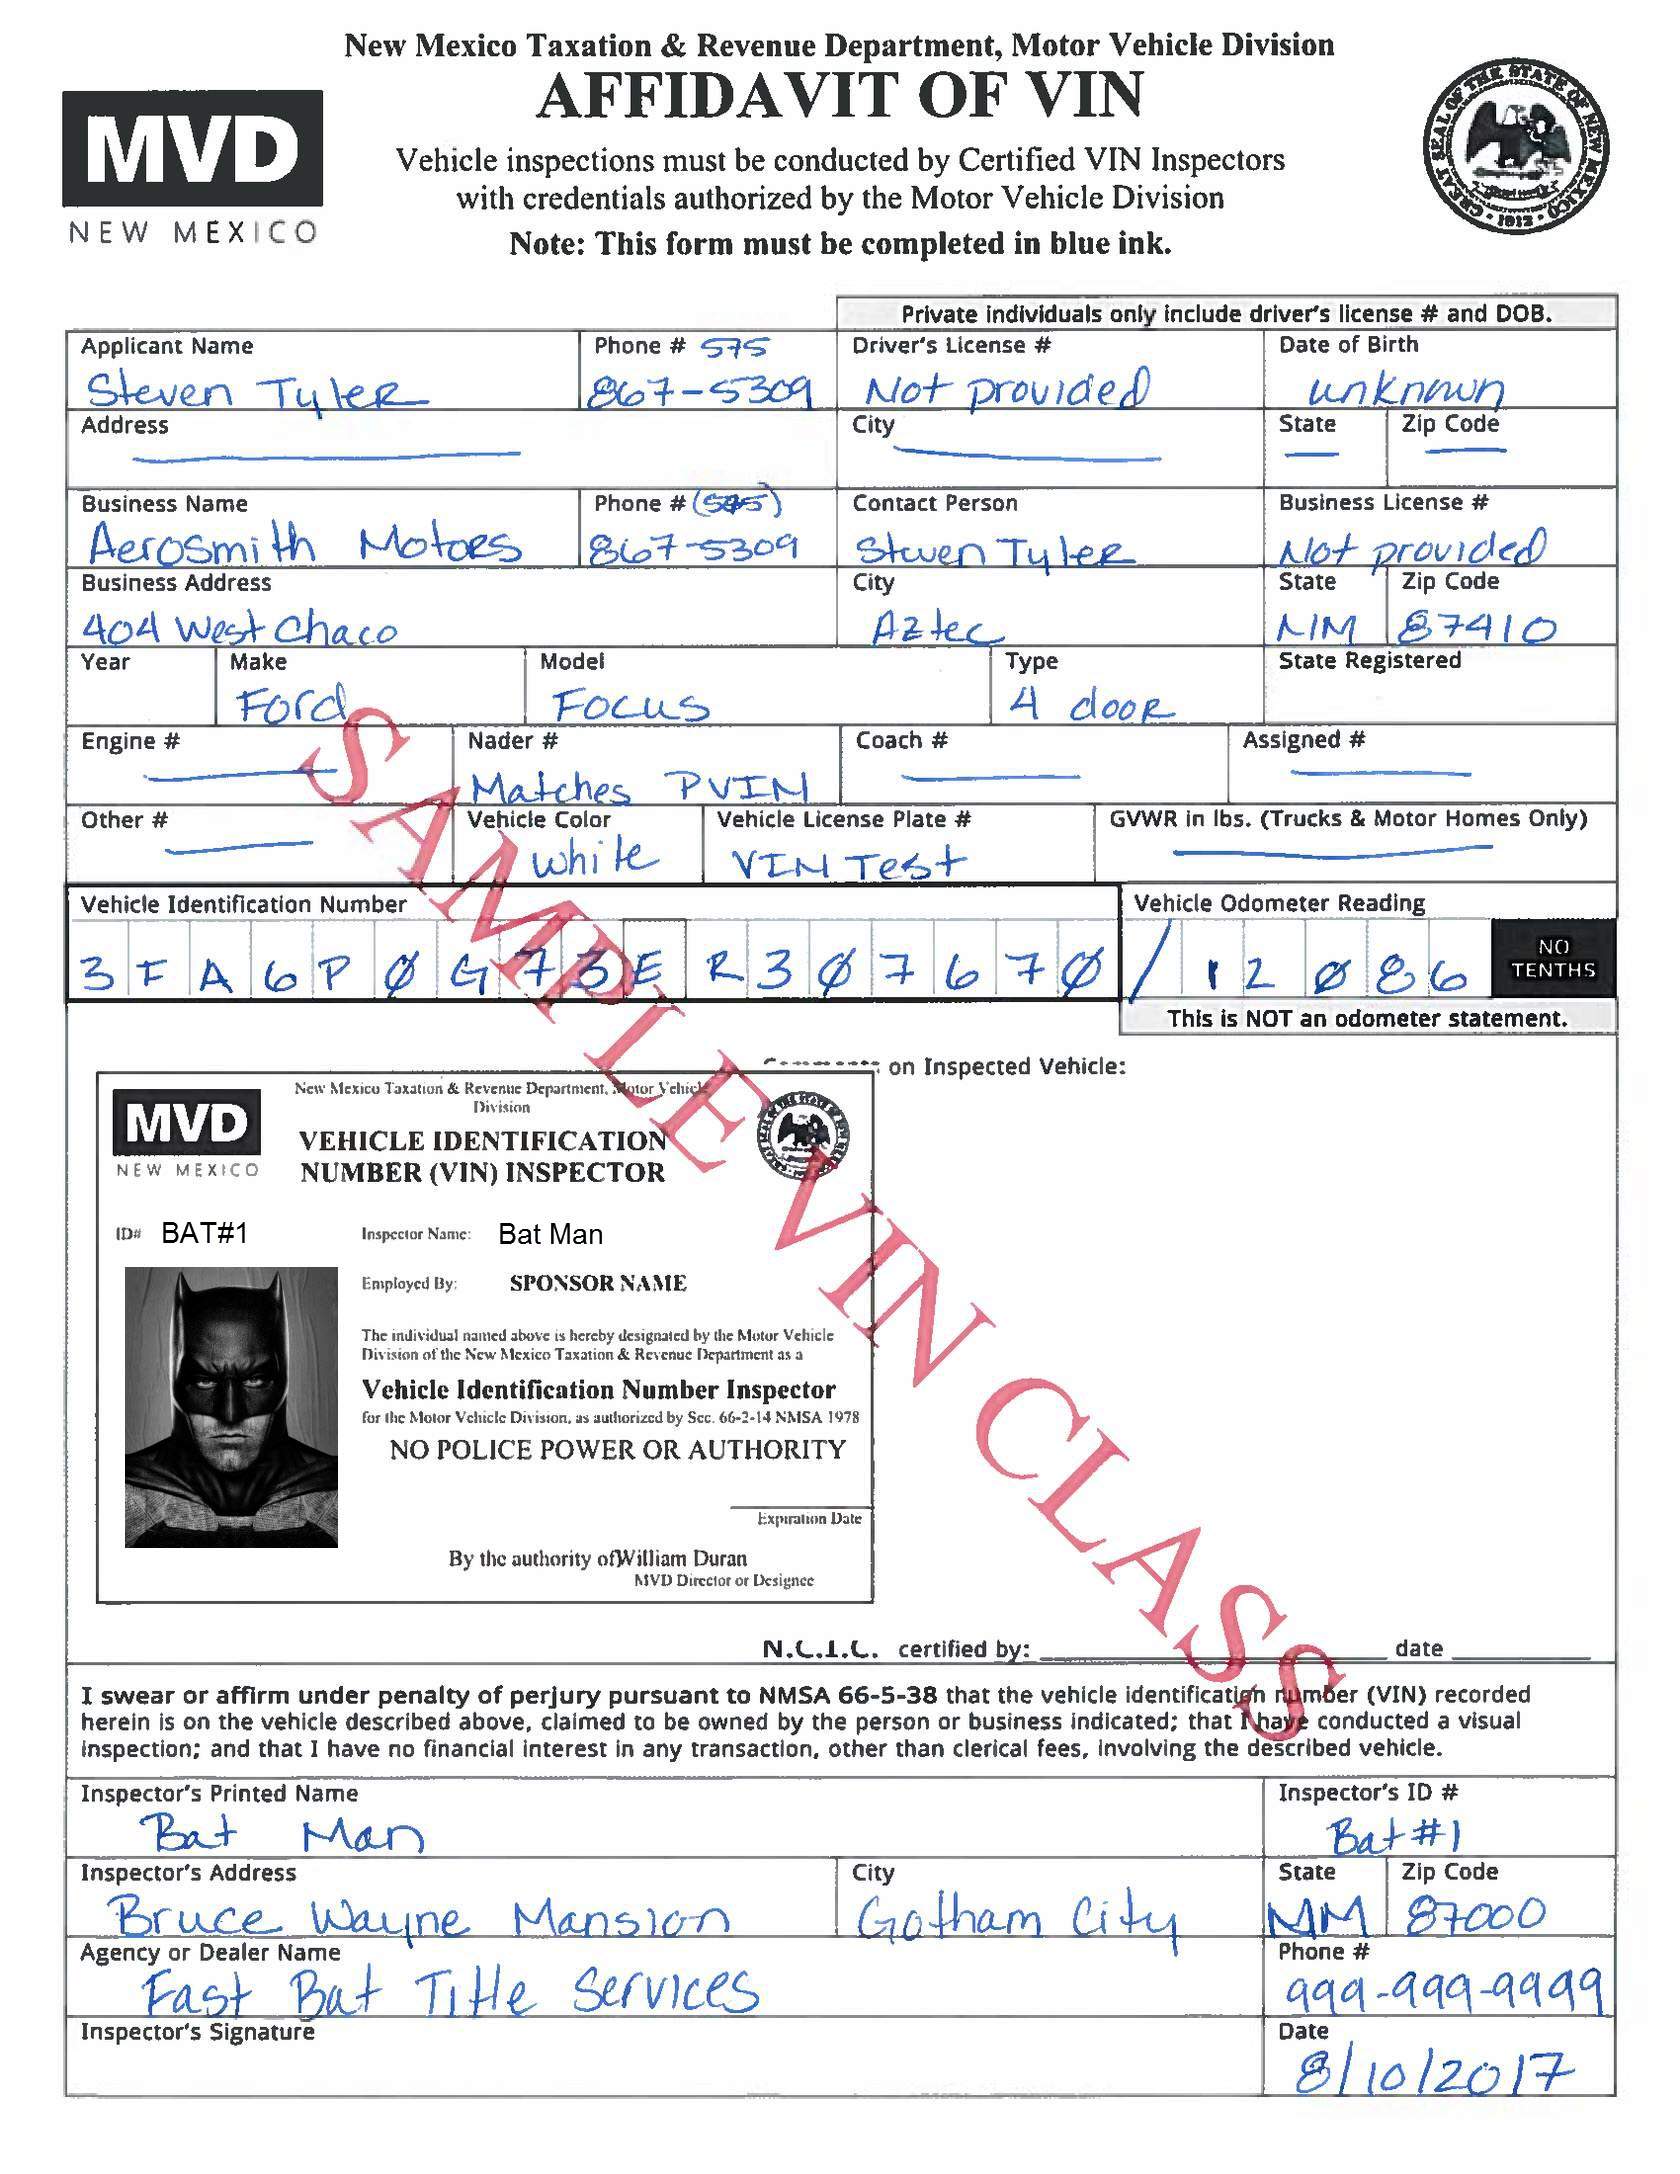 New Mexico Taxation & Revenue Department, Motor Vehicle Division
AFFIDAVIT OF VIN
MVD
NEW MEXICO
Vehicle inspections must be conducted by Certified VIN Inspectors
with credentials authorized by the Motor Vehicle Division
Note: This form must be completed in blue ink.
GREAT SEAL OF THE STATE OF NEW MEXICO · 1912 ·
Private individuals only include driver's license # and DOB.
Applicant Name Phone # 575 Driver's License # Date of Birth
Steven Tyler 867-5309 Not provided unknown
Address City State Zip Code
Business Name Phone # (575) Contact Person Business License #
Aerosmith Motors 867-5309 Steven Tyler Not provided
Business Address City State Zip Code
404 West Chaco Aztec NM 87410
Year Make Model Type State Registered
Ford Focus 4 door
Engine # Nader # Coach # Assigned #
Matches PVIN
Other # Vehicle Color Vehicle License Plate # GVWR in lbs. (Trucks & Motor Homes Only)
White VIN Test
Vehicle Identification Number Vehicle Odometer Reading
3FA6P0G73ER307670 / 12086 NO TENTHS
This is NOT an odometer statement.
on Inspected Vehicle:
New Mexico Taxation & Revenue Department, Motor Vehicle
Division
MVD
NEW MEXICO
VEHICLE IDENTIFICATION
NUMBER (VIN) INSPECTOR
ID# BAT#1 Inspector Name: Bat Man
Employed By: SPONSOR NAME
The individual named above is hereby designated by the Motor Vehicle
Division of the New Mexico Taxation & Revenue Department as a
Vehicle Identification Number Inspector
for the Motor Vehicle Division, as authorized by Sec. 66-2-14 NMSA 1978
NO POLICE POWER OR AUTHORITY
Expiration Date
By the authority ofWilliam Duran
MVD Director or Designee
N.C.I.C. certified by: date
I swear or affirm under penalty of perjury pursuant to NMSA 66-5-38 that the vehicle identification number (VIN) recorded
herein is on the vehicle described above, claimed to be owned by the person or business indicated; that I have conducted a visual
inspection; and that I have no financial interest in any transaction, other than clerical fees, involving the described vehicle.
Inspector's Printed Name Inspector's ID #
Bat Man Bat#1
Inspector's Address City State Zip Code
Bruce Wayne Mansion Gotham City NM 87000
Agency or Dealer Name Phone #
Fast Bat Title Services 999-999-9999
Inspector's Signature Date
8/10/2017
SAMPLE VIN CLASS